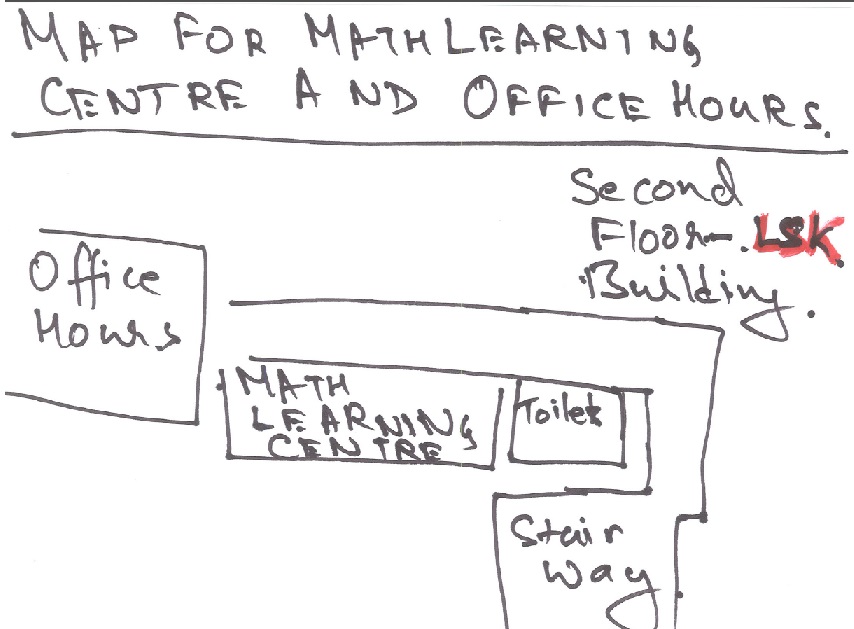 MAP FOR MATH LEARNING
CENTRE AND OFFICE HOURS.
Second
Floor-.LSK.
Building.
Office
Hours
MATH
LEARNING
CENTRE
Toilet
Stair
Way